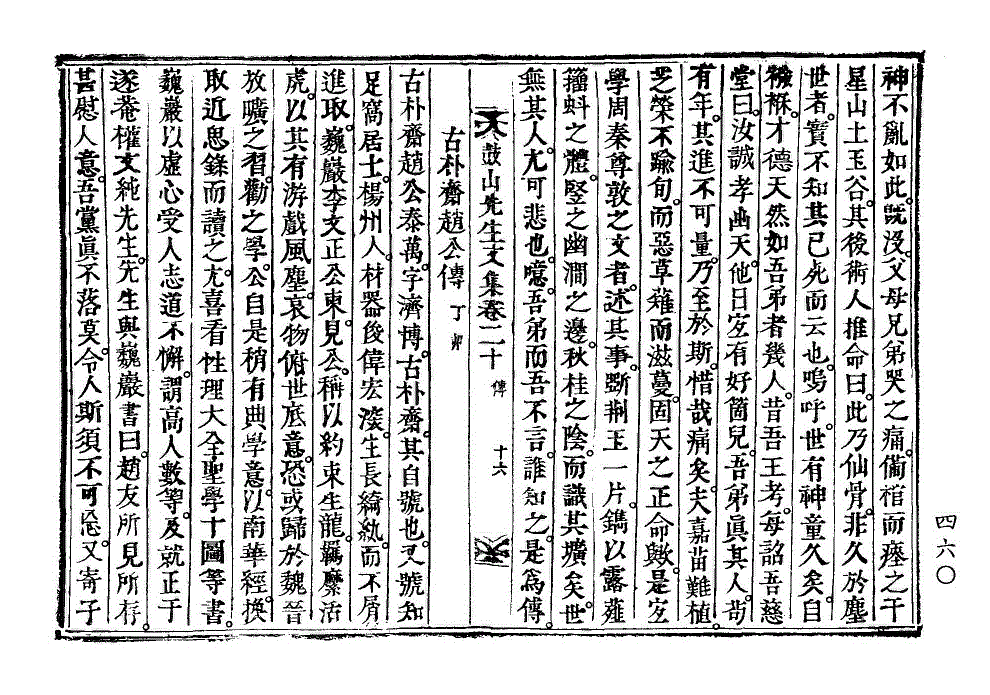 神不亂如此旣沒父母兄弟哭之痛備棺而瘞之于
星山土玉谷其後術人推命曰此乃仙骨非久於塵
世者寶不知其已死而云也嗚呼世有神童久矣自
襁褓才德天然如吾弟者幾人昔吾王考每詔吾慈
堂曰汝誠孝幽天他日宜有好箇兒吾弟眞其人苟
有年其進不可量乃至於斯惜哉痛矣夫嘉苗難植
芝榮不踰旬而惡草薙而滋蔓固天之正命歟是宜
學周秦尊敦之文者述其事斲荆玉一片鐫以露薤
籒蚪之體竪之幽澗之邊秋桂之陰而識其壙矣世
無其人尤可悲也噫吾弟而吾不言誰知之是爲傳
鼓山先生文集卷二十 傳 十六
古朴齋趙公傳 丁卯
古朴齋趙公泰萬字濟博古朴齋其自號也又號知
足窩居士楊州人材器俊偉宏濶生長綺紈而不屑
進取巍巖李文正公柬見公稱以約束生龍羈縻活
虎以其有游戲風塵哀物俯世底意恐或歸於魏晉
放曠之習勸之學公自是稍有典學意以南華經換
取近思錄而讀之尤喜看性理大全聖學十圖等書
巍巖以虛心受人志道不懈謂高人數等及就正于
遂菴權文純先生先生與巍巖書曰趙友所見所存
甚慰人意吾黨眞不落莫令人斯須不可忘又寄子
四六〇